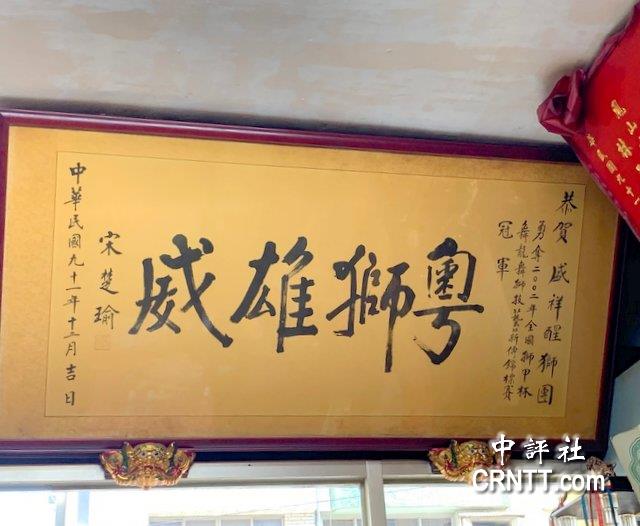 恭賀 盛祥醒獅團
勇奪二〇〇二年全國獅甲杯
舞龍舞獅技藝薪傳錦標賽
冠軍
粵獅雄威
宋楚瑜
中華民國九十一年十二月吉日
鳳山
華民國九十一
中評社
CRNTT.com